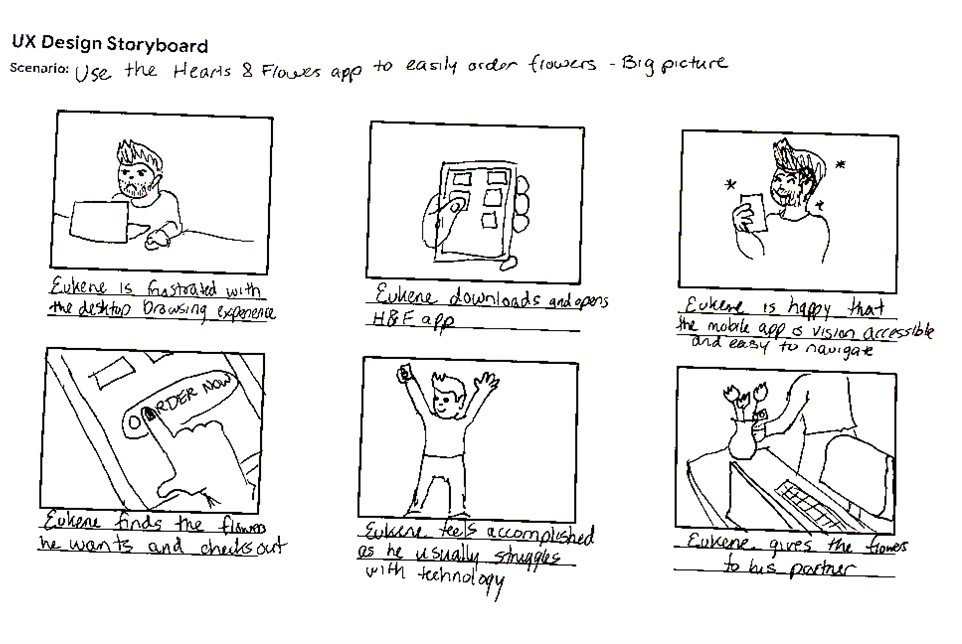 UX Design Storyboard
Scenario: Use the Hearts & Flowes app to easily order flowers - Big picture
Eukene is frustrated with
the desktop browsing experience
Eukene downloads and opens
H&F app
Eukene is happy that
the mobile app is vision accessible
and easy to navigate
ORDER NOW
Eukene finds the flowers
he wants and checks out
Eukene feels accomplished
as he usually struggles
with technology
Eukene gives the flowers
to his partner